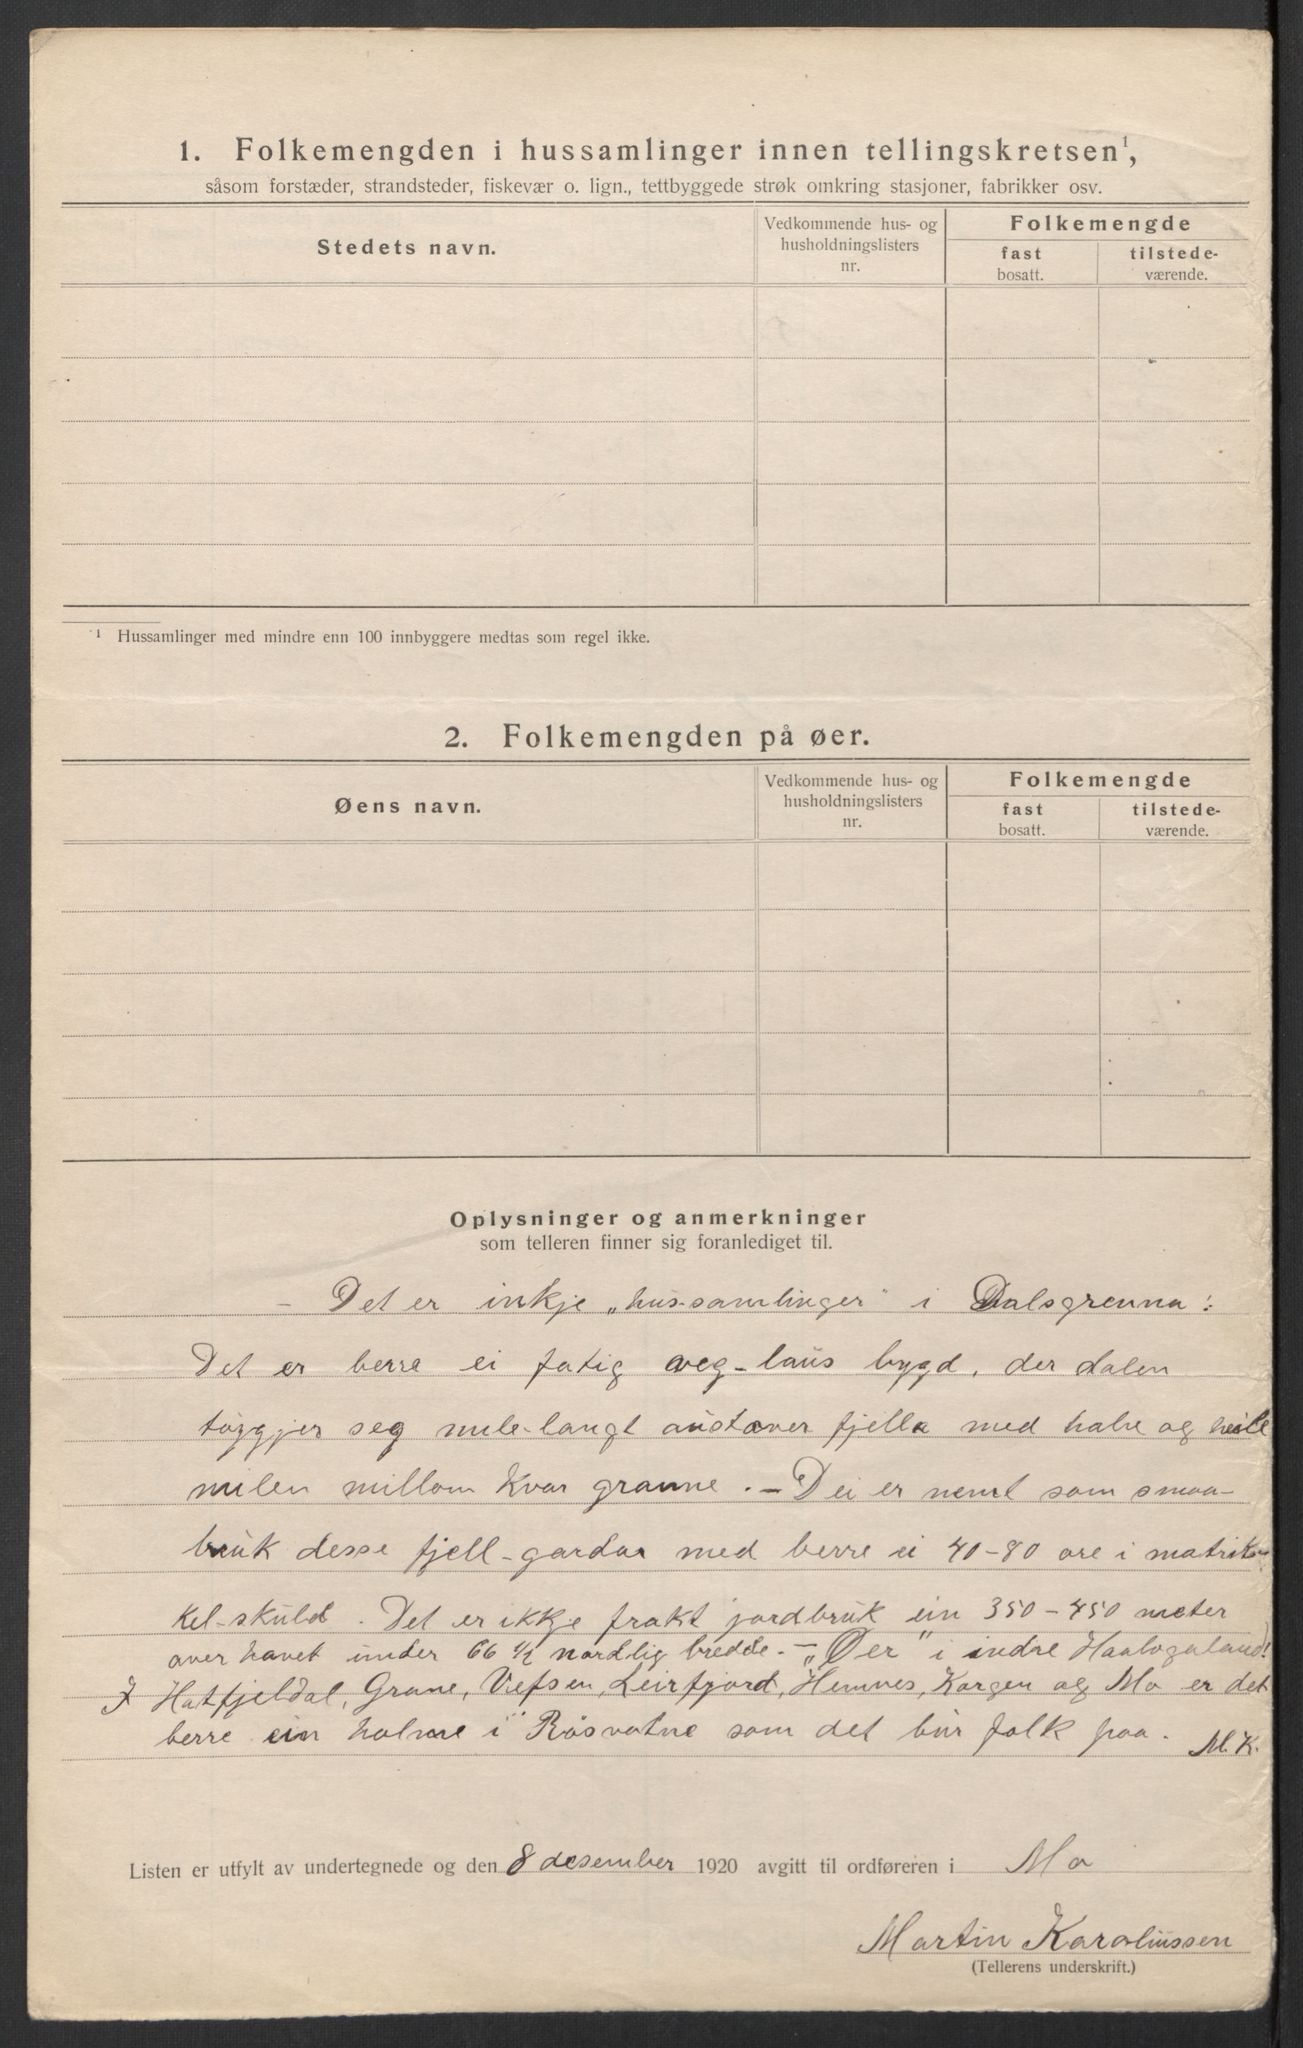 1. Folkemengden i hussamlinger innen tellingskretsen¹,
såsom forstæder, strandsteder, fiskevær o. lign., tettbyggede strøk omkring stasjoner, fabrikker osv.
Stedets navn.
Vedkommende hus- og
husholdningslisters
nr.
Folkemengde
fast
bosatt.
tilstede-
værende.
¹ Hussamlinger med mindre enn 100 innbyggere medtas som regel ikke.
2. Folkemengden på øer.
Øens navn.
Vedkommende hus- og
husholdningslisters
nr.
Folkemengde
fast
bosatt.
tilstede-
værende.
Oplysninger og anmerkninger
som telleren finner sig foranlediget til.
- Det er inkje „hus-samlinger" i Dalsgrenna:
Det er berre ei fatig veg-laus bygd, der dalen
tøygjer seg mile-langt austover fjella med halve og heile
milen millom kvar granne. - Dei er nemt som smaa-
bruk desse fjell-gardar med berre ei 40-80 øre i matrik-
kel-skuld. Det er ikkje frakt jordbruk ein 350-450 meter
over havet under 66 ½ nordlig bredde. - „Øer" i indre Haalogaland!
I Hatfjeldal, Grane, Vefsen, Leirfjord, Hemnes, Korgen og Mo er det
berre ein holme i Røsvatne som det bur folk paa. M.K.
Listen er utfylt av undertegnede og den 8 desember 1920 avgitt til ordføreren i Mo
Martin Karoliussen
(Tellerens underskrift.)